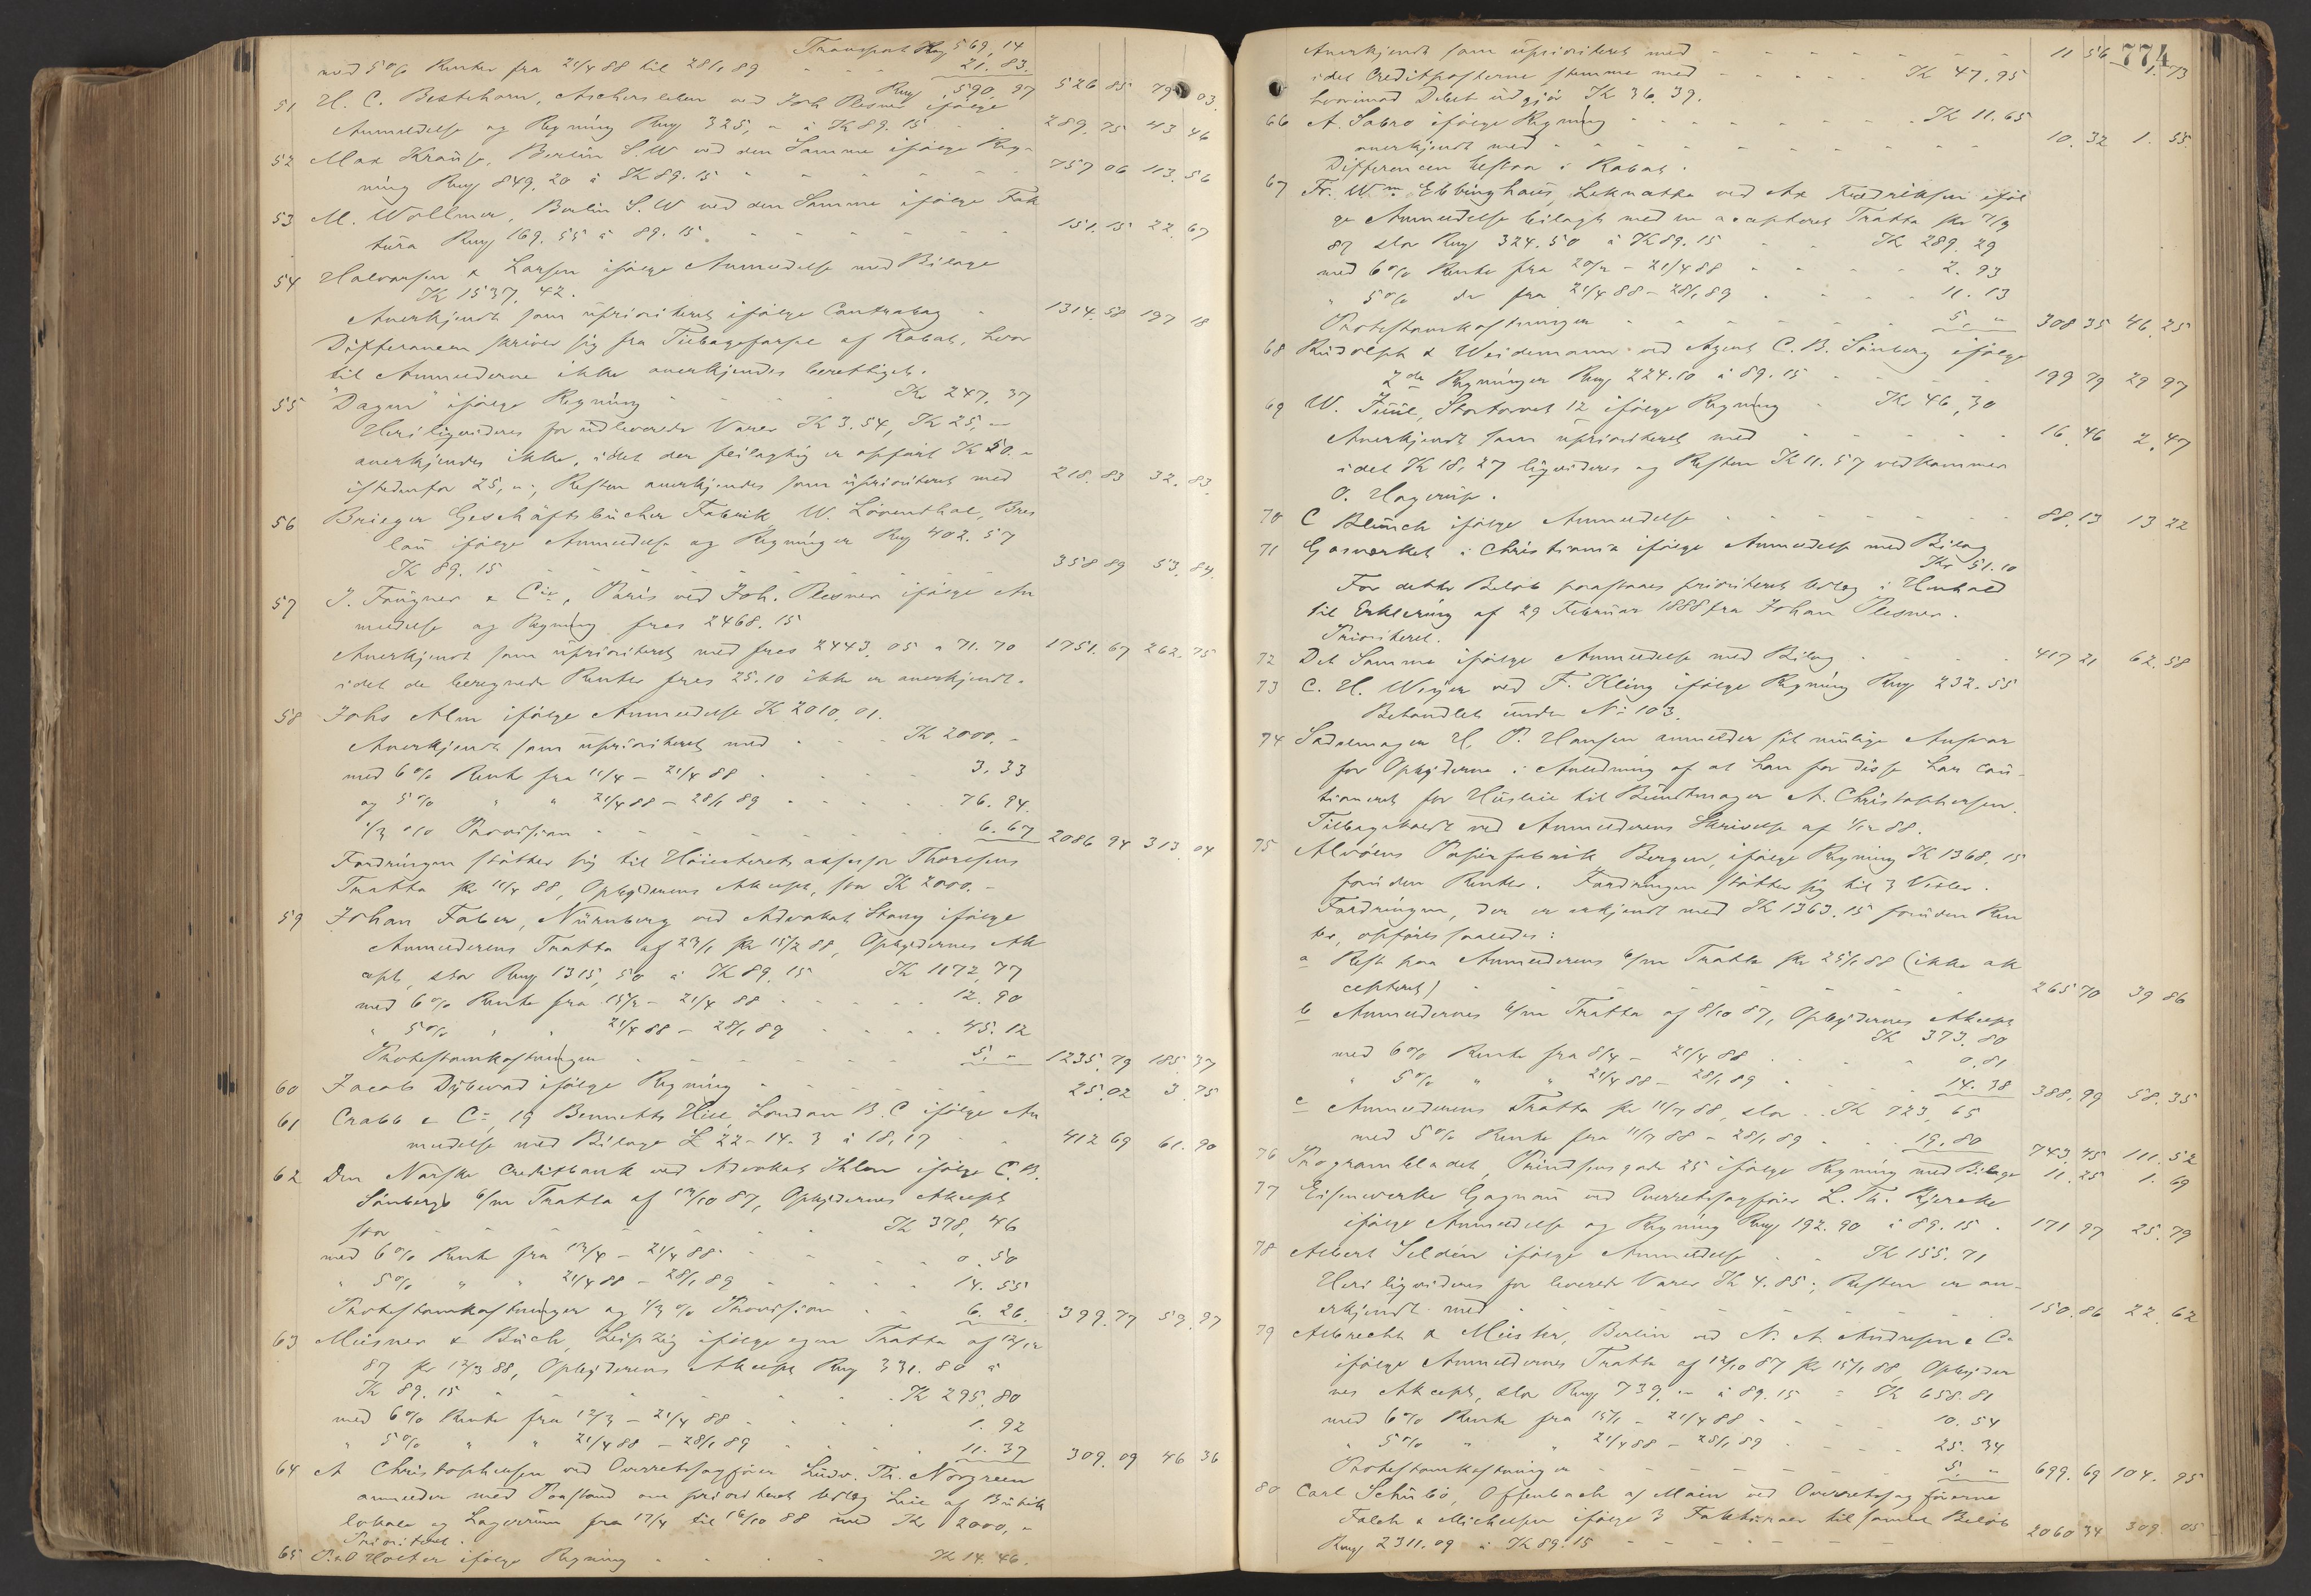 Transport Rmk 569,14
med 5% Renter fra 21/4 88 til 28/1 89 - - - 21.83.
Rmk 590.97 526 85 79 03.
51 H. C. Bestehorn, Aschersleben ved Joh Plesner ifølge
Anmeldelse og Regning Rmk 325, - à Kr 89.15 - - 289.75 43 46
52 Max Krause, Berlin S.W ved den Samme ifølge Reg-
ning Rmk 849.20 à Kr 89.15 - - - - - 757 06 113.56
53 M. Wollmer, Berlin S.W ved den Samme ifølge Fak
tura Rmk 169.55 à 89.15. - - - - - - 151.15 22.67
54 Halvorsen & Larsen ifølge Anmeldelse med Bilage
Kr 1537.42.
Anerkjendt som uprioriteret ifølge Contrabog - 1314.58 197 18
Differancen skriver sig fra Tilbageførsel af Rabat, hvor
til Anmelderne ikke anerkjendes berettiget.
55 "Dagen" ifølge Regning - - - - Kr 247.37
Heri ligvideres for udleverede Varer Kr 3.54, Kr 25, -
anerkjendes ikke, idet der feilagtig er opført Kr 50. -
istedenfor 25, -; Resten anerkjendes som uprioriteret med 218.83 32.83.
56 Brieger Geschäftsbücher Fabrik, W. Löwenthal, Bres
lau ifølge Anmeldelse og Regninger Rmk 402.57
Kr 89.15 - - - - - - - - 358 89 53.84.
57 J. Faugner & Cie, Paris ved Joh. Plesner ifølge An
meldelse og Regning frcs 2468.15
Anerkjendt som uprioriteret med frcs 2443.05 à 71.70 1751.67 262.75
idet de beregnede Renter frcs 25.10 ikke er anerkjendt.
58 Johs Alm ifølge Anmeldelse Kr 2010.01.
Anerkjendt som uprioriteret med - - - Kr 2000. -
med 6% Rente fra 11/4 - 21/4 88 - - - - 3.33
og 5% " " 21/4 88 - 28/1 89 - - - - 76.94.
1/3 % Provision - - - - - - - 6.67 2086 94 313.04
Fordringen støtter sig til Høiesteretsassessor Thoresens
Tratta pr 11/4 88, Opbyderens Accept, stor Kr 2000. -
59 Johan Faber, Nürnberg ved Advokat Stang ifølge
Anmelderens Tratta af 23/1 pr 15/2 88, Opbydernes Ak
cept, stor Rmk 1315,50 à Kr 89.15 Kr 1172,77
med 6% Rente fra 15/2 - 21/4 88 - - - - 12.90
" 5% " " 21/4 88 - 28/1 89 - - - - 45.12
Protestomkostninger - - - - - - - 5. - 1235.79 185.37
60 Jacob Dybwad ifølge Regning - - - - - - 25.02 3.75
61 Crabb & Co, 19 Bennetts Hill, London B.C ifølge An
meldelse med Bilage £ 22-14-3 à 18,17 - - 412 69 61.90
62 Den Norske Creditbank ved Advokat Ihlen ifølge C. B.
Sønbergs 6/m Tratta af 13/10 87, Opbydernes Accept
stor - - - - - - - Kr 378,46
med 6% Rente fra 13/4 - 21/4 88 - - - 0.50
" 5% " " 21/4 88 - 28/1 89 - - - - 14.55
Protestomkostninger og 1/3 % Provision - - 6.26. 399.77 59.97
63 Meisner & Buch, Leipzig ifølge egen Tratta af 12/12
87 pr 12/3 88, Opbyderens Accept Rmk 331.80 à
Kr 89.15 - - - - - - Kr 295.80
med 6% Rente fra 12/3 - 21/4 88 - - - - 1.92
" 5% " " 21/4 88 - 28/1 89 - - - - 11.37 309.09 46 36
64 A Christophersen ved Overretssagfører Ludv. Th. Norgreen
anmelder med Paastand om prioriteret Udlæg Leie af Butik
lokale og Lagerrum fra 17/4 til 16/10 88 med Kr 2000, -
Prioriteret.
65 P. & O Holter ifølge Regning - - - - Kr 14.46.
774
Anerkjendt som uprioriteret med - - - - - - 11 56 1.73
idet Creditposterne stemme med - - - - - Kr 47.95
hvorimod Debet udgjør Kr 36.39.
66 A. Sabro ifølge Regning - - - - - - - - Kr 11.65
anerkjendt med - - - - - - - - - - 10.32 1.55.
Differencen bestaar i Rabat.
67 Fr. Wm Ebbinghaus, Letmathe ved Ax Fredriksen iføl
ge Anmeldelse bilagt med en accepteret Tratta pr 7/9
87 stor Rmk 324.50 à Kr 89.15 - - Kr 289.29
med 6% Rente fra 20/2 - 21/4 88 - - - - 2.93
" 5% do fra 21/4 88 - 28/1 89 - - - - 11.13
Protestomkostninger - - - - - - - 5. - 308 35 46.25
68 Rudolph & Weidemann ved Agent C. B. Sønberg ifølge
2de Regninger Rmk 224.10 à 89.15 - - - - - 199 79 29 97
69 W. Juul, Stortorvet 12 ifølge Regning - Kr 46,30
Anerkjendt som uprioriteret med - - - - - - 16.46 2.47
idet Kr 18.27 ligvideres og Resten Kr 11.57 vedkommer
O. Hagerup.
70 C Blunck ifølge Anmeldelse - - - - - - - 88.13 13 22
71 Gasværket i Christiania ifølge Anmeldelse med Bilag
Kr 51.10
For dette Beløb paastaaes prioriteret Udlæg i Henhold
til Erklæring af 29 Februar 1888 fra Johan Plesner.
Prioriteret.
72 Det Samme ifølge Anmeldelse med Bilag - - - - - 417 21 62.58
73 C. H. Weyer ved F. Kling ifølge Regning Rmk 232.55
Behandlet under No 103.
74 Sadelmager H. P. Hansen anmelder sit mulige Ansvar
for Opbyderne i Anledning af at han for disse har cau-
tioneret for Husleie til Bundtmager A. Christophersen.
Tilbagekaldt ved Anmelderens Skrivelse af 1/12 88.
75 Alvøens Papirfabrik, Bergen, ifølge Regning Kr 1368,15
foruden Renter. Fordringen støtter sig til 3 Vexler.
Fordringen, der er erkjendt med Kr 1363.15 foruden Ren
ter, opføres saaledes:
a Rest paa Anmelderens 6/m Tratta pr 25/1 88 (ikke ak
cepteret) - - - - - - - - - - 265 70 39 86
b Anmeldernes 6/m Tratta af 8/10 87, Opbydernes Accept
Kr 373.80
med 6% Rente fra 8/4 - 21/4 88 - - - - 0.81
" 5% " " 21/4 88 - 28/1 89 - - - - 14.38 388.99 58.35
c Anmelderens Tratta pr 11/7 88, stor - - Kr 723,65
med 5% Rente fra 11/7 88 - 28/1 89 - - - 19.80 743.45 111.52
76 Programbladet, Prindsensgade 25 ifølge Regning med Bilage 11.25 1.69
77 Eisenwerke Gagnau ved Overretssagfører L. Th. Bjercke
ifølge Anmeldelse og Regning Rmk 192.90 à 89.15 - 171 97 25.79
78 Albert Seldén ifølge Anmeldelse - - Kr 155.71
Heri ligvideres for leverede Varer Kr 4.85; Resten er an-
erkjendt med - - - - - - - - - - 150.86 22.62
79 Albrecht & Meister, Berlin ved N. A. Andresen & Co
ifølge Anmeldernes Tratta af 12/10 87 pr 15/1 88, Opbyder
nes Accept, stor Rmk 739, - à 89.15 = Kr 658.81
med 6% Rente fra 15/1 - 21/4 88 - - - - 10.54
" 5% " " 21/4 88 - 28/1 89 - - - - 25.34
Protestomkostninger - - - - - - - 5. - 699.69 104.95
80 Carl Schübö, Offenbach a/ Main ved Overretssagførerne
Falch & Michelsen ifølge 3 Fakturaer til samlet Beløb
Rmk 2311.09 à Kr 89.15 - - - - - - 2060 34 309.05